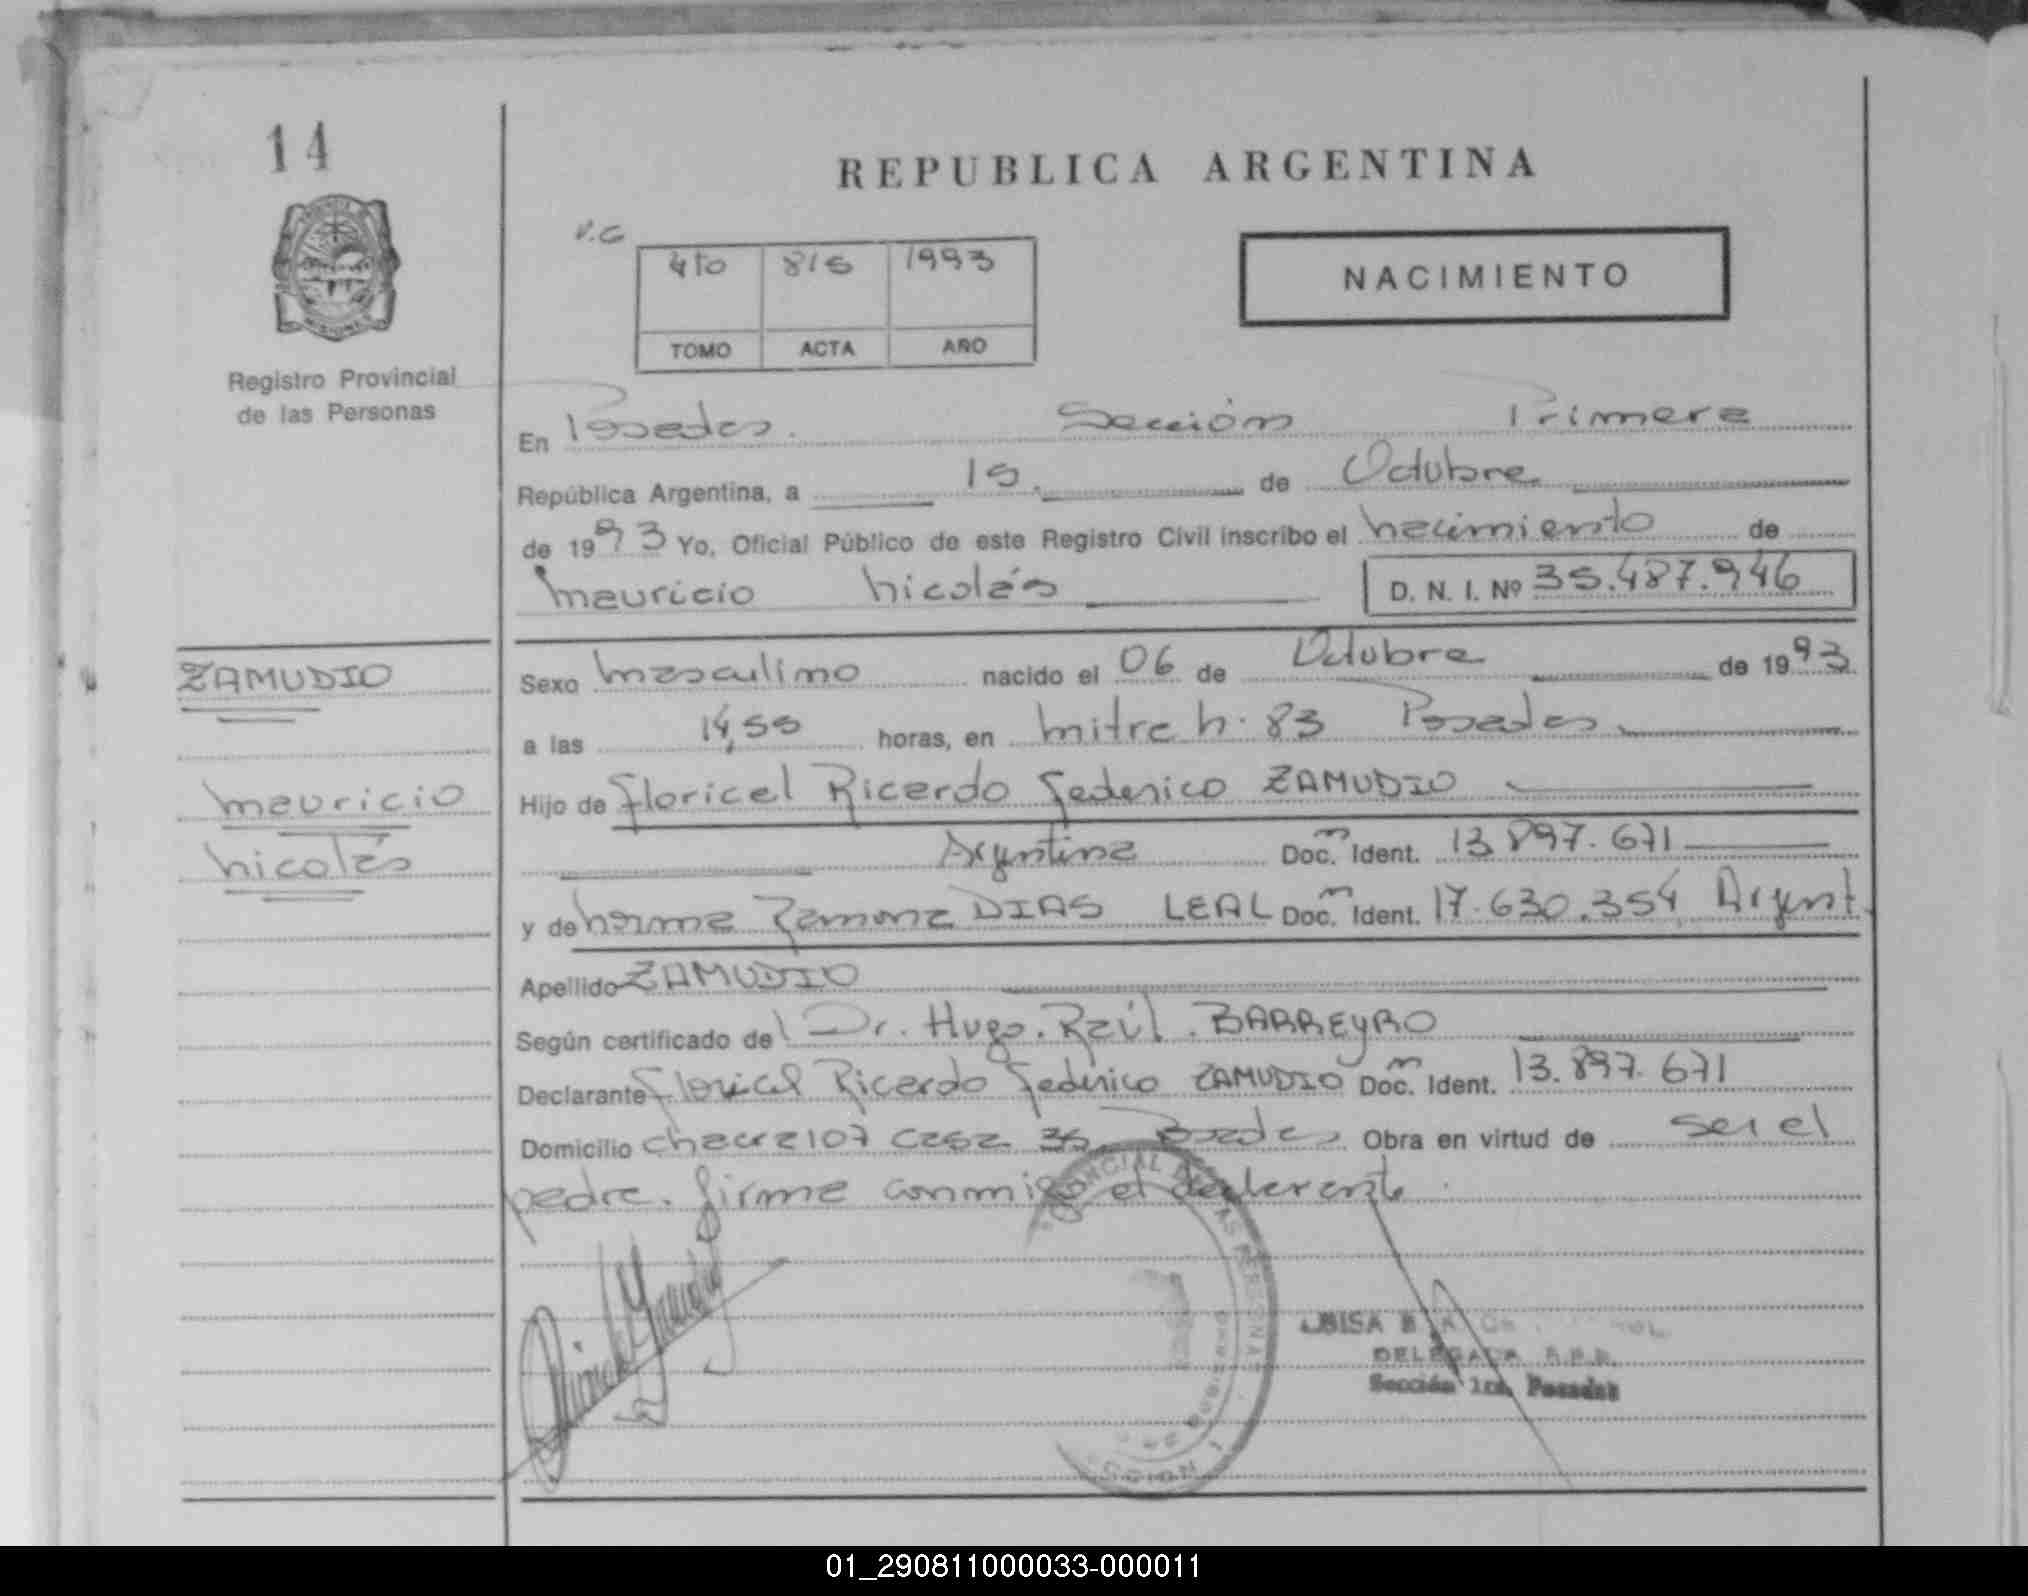 14
REPUBLICA ARGENTINA
V.C
4to 815 1993
TOMO ACTA AÑO
NACIMIENTO
Registro Provincial
de las Personas
En Posadas. Sección Primera
República Argentina, a 15. de Octubre
de 1993 Yo, Oficial Público de este Registro Civil inscribo el nacimiento de
Mauricio Nicolás D. N. I. Nº 35.487.946
ZAMUDIO
Mauricio
Nicolás
Sexo Masculino nacido el 06 de Octubre de 1993
a las 14,55 horas, en Mitre N. 83 Posadas
Hijo de Floricel Ricardo Federico ZAMUDIO
Argentina Doc. Ident. 13.897.671
y de Norma Ramona DIAS LEAL Doc. Ident. 17.630.354 Argent.
Apellido ZAMUDIO
Según certificado del Dr. Hugo. Raúl. BARREYRO
Declarante Floricel Ricardo Federico ZAMUDIO Doc. Ident. 13.897.671
Domicilio Chacra 107 casa 35. Posadas Obra en virtud de ser el
padre. firma conmigo el declarante.
DELEGADA R.P.P.
Sección 1ra. Posadas
01_290811000033-000011